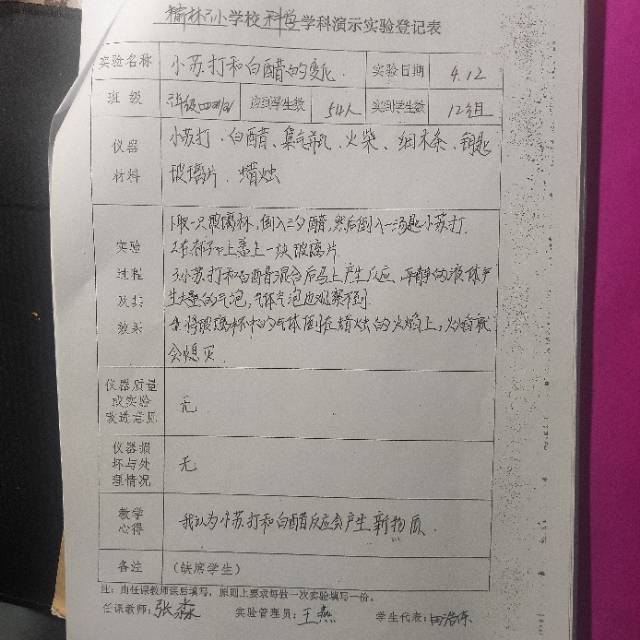 榆林小学校科学学科演示实验登记表
实验名称 小苏打和白醋的变化. 实验日期 4.12
班 级 应到学生数 54人 实到学生数 12组
仪器 小苏打、白醋、集气瓶、火柴、细木条、钥匙
材料 玻璃片、蜡烛
1.取一只玻璃杯,倒入三分醋,然后倒入一汤匙小苏打.
实验 2.在杯子上盖上一块玻璃片
过程 3.小苏打和白醋混合后马上产生反应,平静的液体产
及 生大量的气泡,气体气泡也观察不到
效果 4.将玻璃杯中的气体倒在蜡烛的火焰上,火焰就
会熄灭.
仪器质量
或实验 无
改进意见
仪器损
坏与处 无
理情况
教学 我认为小苏打和白醋反应会产生新物质.
心得
备注 (缺席学生)
注:由任课教师课后填写,原则上要求每做一次实验填写一份。
任课教师:张淼 实验管理员:王燕 学生代表:田浩